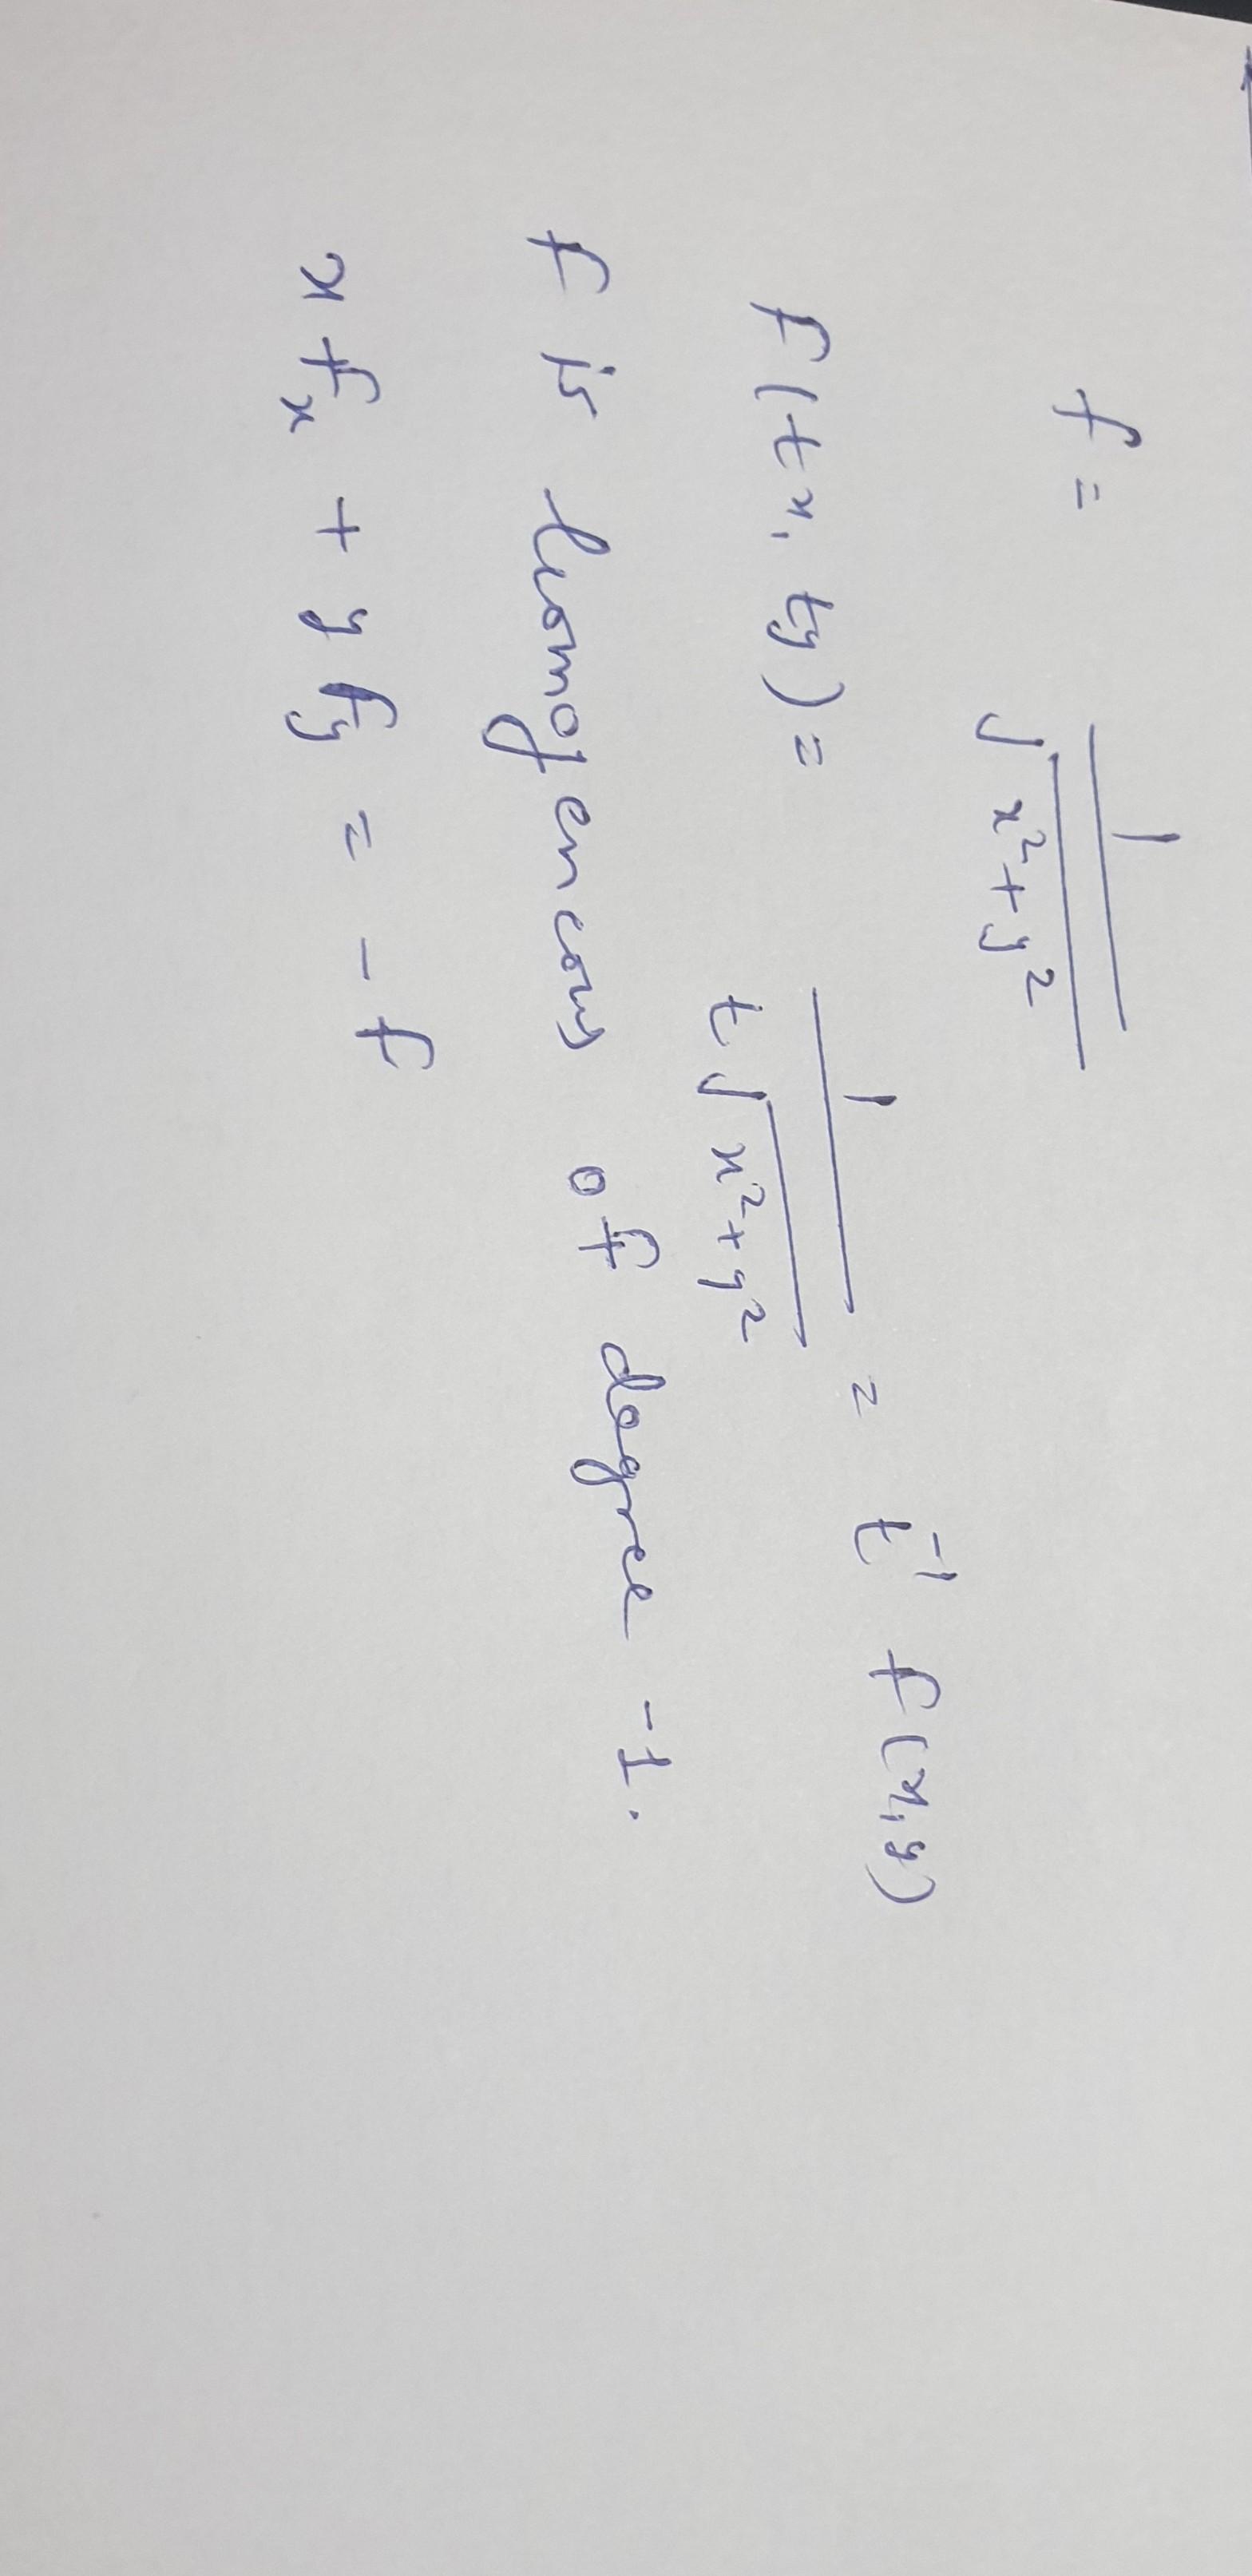 f = 1/√(x²+y²)
f(tx, ty) = 1/(t√(x²+y²)) = t⁻¹ f(x,y)
f is homogeneous of degree -1.
x fₓ + y f_y = -f